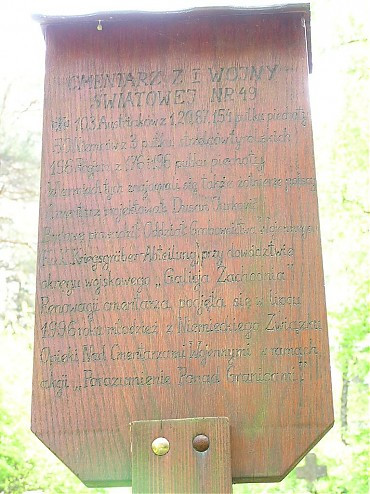 CMENTARZ Z I WOJNY
ŚWIATOWEJ NR 49
103 Austriaków z 1,20,87, 154 pułku piechoty
30 Niemców z 3 pułku strzelców tyrolskich i
168 Rosjan z 176 i 196 pułku piechoty
W armiach tych znajdowali się także żołnierze polscy
Cmentarz projektował Dusan Jurkovič
Budowę prowadził Oddział Grobownictwa Wojennego
K.u.K. Kriegsgräber Abteilung) przy dowództwie
okręgu wojskowego "Galicja Zachodnia"
Renowacji cmentarza podjęła się w lipcu
1996 roku młodzież z Niemieckiego Związku
Opieki Nad Cmentarzami Wojennymi w ramach
akcji "Porozumienie Ponad Granicami"